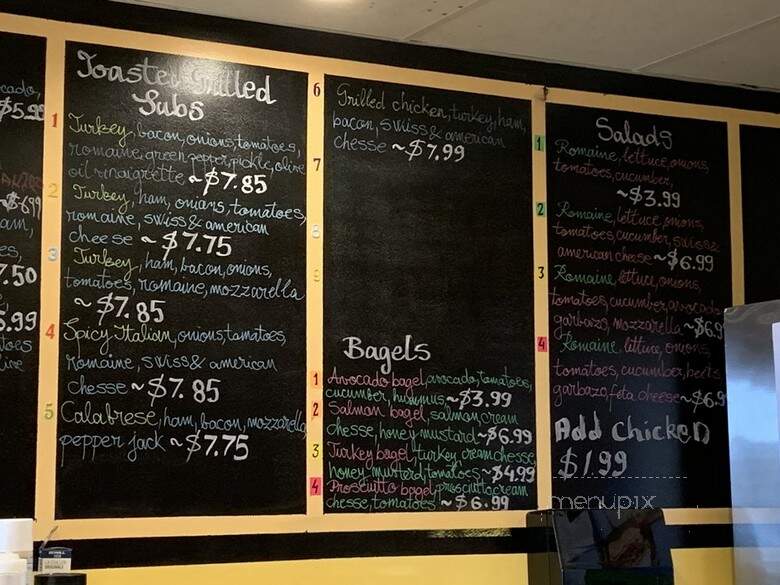 $5.99
7.50
5.99
Toasted Grilled
Subs
1
Turkey, bacon, onions, tomatoes,
romaine, green pepper, pickle, olive
oil vinaigrette ~ $7.85
2
Turkey, ham, onions, tomatoes,
romaine, swiss & american
cheese ~ $7.75
3
Turkey, ham, bacon, onions,
tomatoes, romaine, mozzarella
~ $7.85
4
Spicy Italian, onions, tomatoes,
romaine, swiss & american
chesse ~ $7.85
5
Calabrese, ham, bacon, mozzarella
pepper jack ~ $7.75
6
Grilled chicken, turkey, ham,
bacon, swiss & american
chesse ~ $7.99
7
8
9
Bagels
1
Avocado bagel, avocado, tomatoes,
cucumber, hummus ~ $3.99
2
Salmon bagel, salmon, cream
chesse, honey mustard ~ $6.99
3
Turkey bagel, turkey, cream chesse,
honey musterd, tomatoes ~ $4.99
4
Prosciutto bagel, prosciutto, cream
chesse, tomatoes ~ $6.99
Salads
1
Romaine, lettuce, onions,
tomatoes, cucumber,
~ $3.99
2
Romaine, lettuce, onions,
tomatoes, cucumber, swiss &
american chesse ~ $6.99
3
Romaine lettuce, onions,
tomatoes, cucumber, avocado,
garbazo, mozzarella ~ $6.9
4
Romaine, lettuce, onions,
tomatoes, cucumber, beets
garbazo, feta, cheese ~ $6.9
Add Chicken
$1.99
menupix